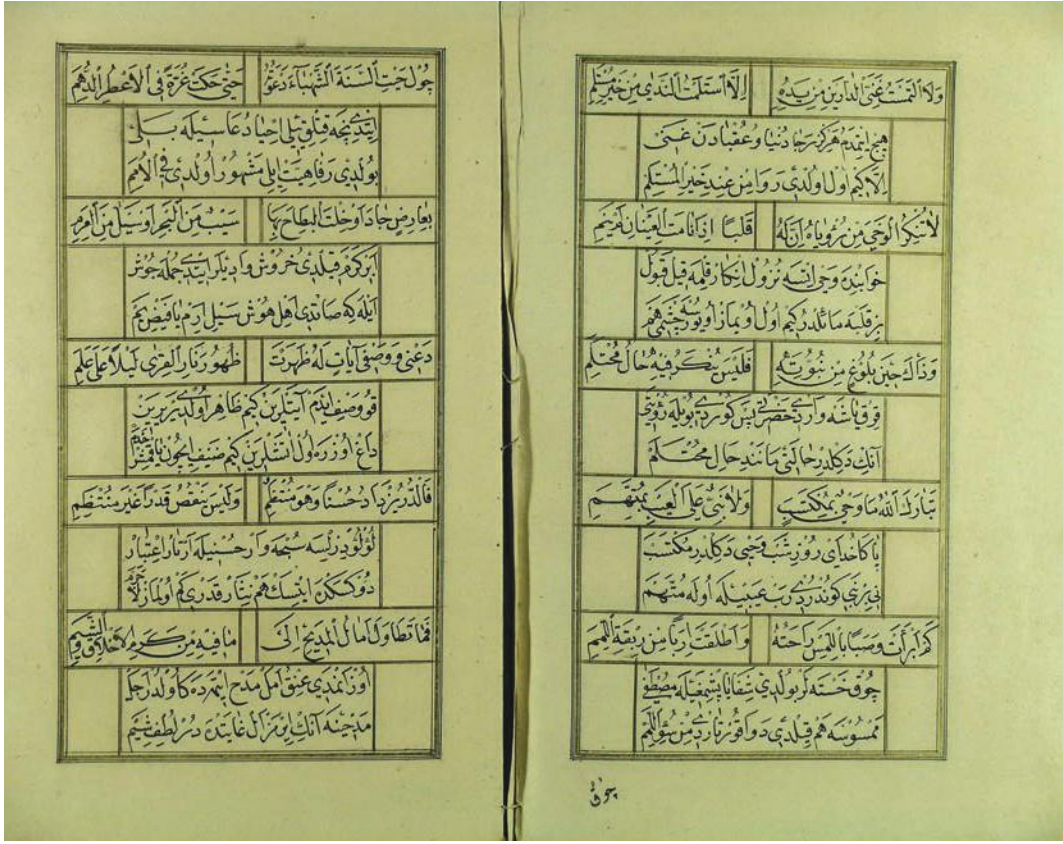 ولا التمست غنى الدارين من يده الا استلمت الندى من خير مستلم
هيچ ايتمدم هركز رجا دنيا و عقبادن غنى
الا كيم اول اولدى روا من عند خير المستلم
لا تنكر الوحي من رؤياه ان له قلبا اذا نامت العينان لم ينم
خوابنده وحى ايتسه نزول انكار قلمه قيل قبول
بر قلبه مائلدر كيم اول اويماز اويوسه چشمى هم
وذاك حين بلوغ من نبوته فليس ينكر فيه حال محتلم
قرق ياشه واردى حضرتى پس كوردى بويله رؤيتى
آنك دكلدر حالتى مانند حال محتلم
تبارك الله ما وحي بمكتسب ولا نبي على الغيب بمتهم
پاكا خداى روز شب وحيى دكلدر مكتسب
نى بر نبى كوندردى رب غيبيله اوله متهم
كم ابرأت وصبا باللمس راحته واطلقت اربا من ربقة اللمم
چوق خسته لر بولدى شفا ياپشمغيله مصطفى
ممسوسه هم قيلدى دوا قورتاردى من سؤ اللمم
چوق
حيت السنة الشهباء دعوته حتى حكت غرة في الاعصر الدهم
ايتدى نيجه قتلق ييلى احيا دعاسيله بلى
بولدى رفاهيت ايلى مشهور اولدى فى الامم
بعارض جاد او خلت البطاح بها سيب من اليم او سيل من العرم
ابر كرم قيلدى خروش واديلر ايتدى جمله جوش
ايله كه صاندى اهل هوش سيل ارم يا فيض يم
دعني ووصفي آيات له ظهرت ظهور نار القرى ليلا على علم
قو وصف ايدم آيتلرين كيم ظاهر اولدى بربرين
داغ اوزره اول آتشلرين كيم ضيف ايچون ياقمش
فالدر يزداد حسنا وهو منتظم وليس ينقص قدرا غير منتظم
لؤلؤ ديزلسه سبحه وار حسنيله آرتار اعتبار
دوكسك ده ايتسك هم نثار قدرى كم اولماز
فما تطاول آمال المديح الى ما فيه من كرم الاخلاق والشيم
اوزانمدى عنق امل مدح ايتمده كا ولدر اجل
مدحنه آنك لم يزل غايتده در لطف شيم